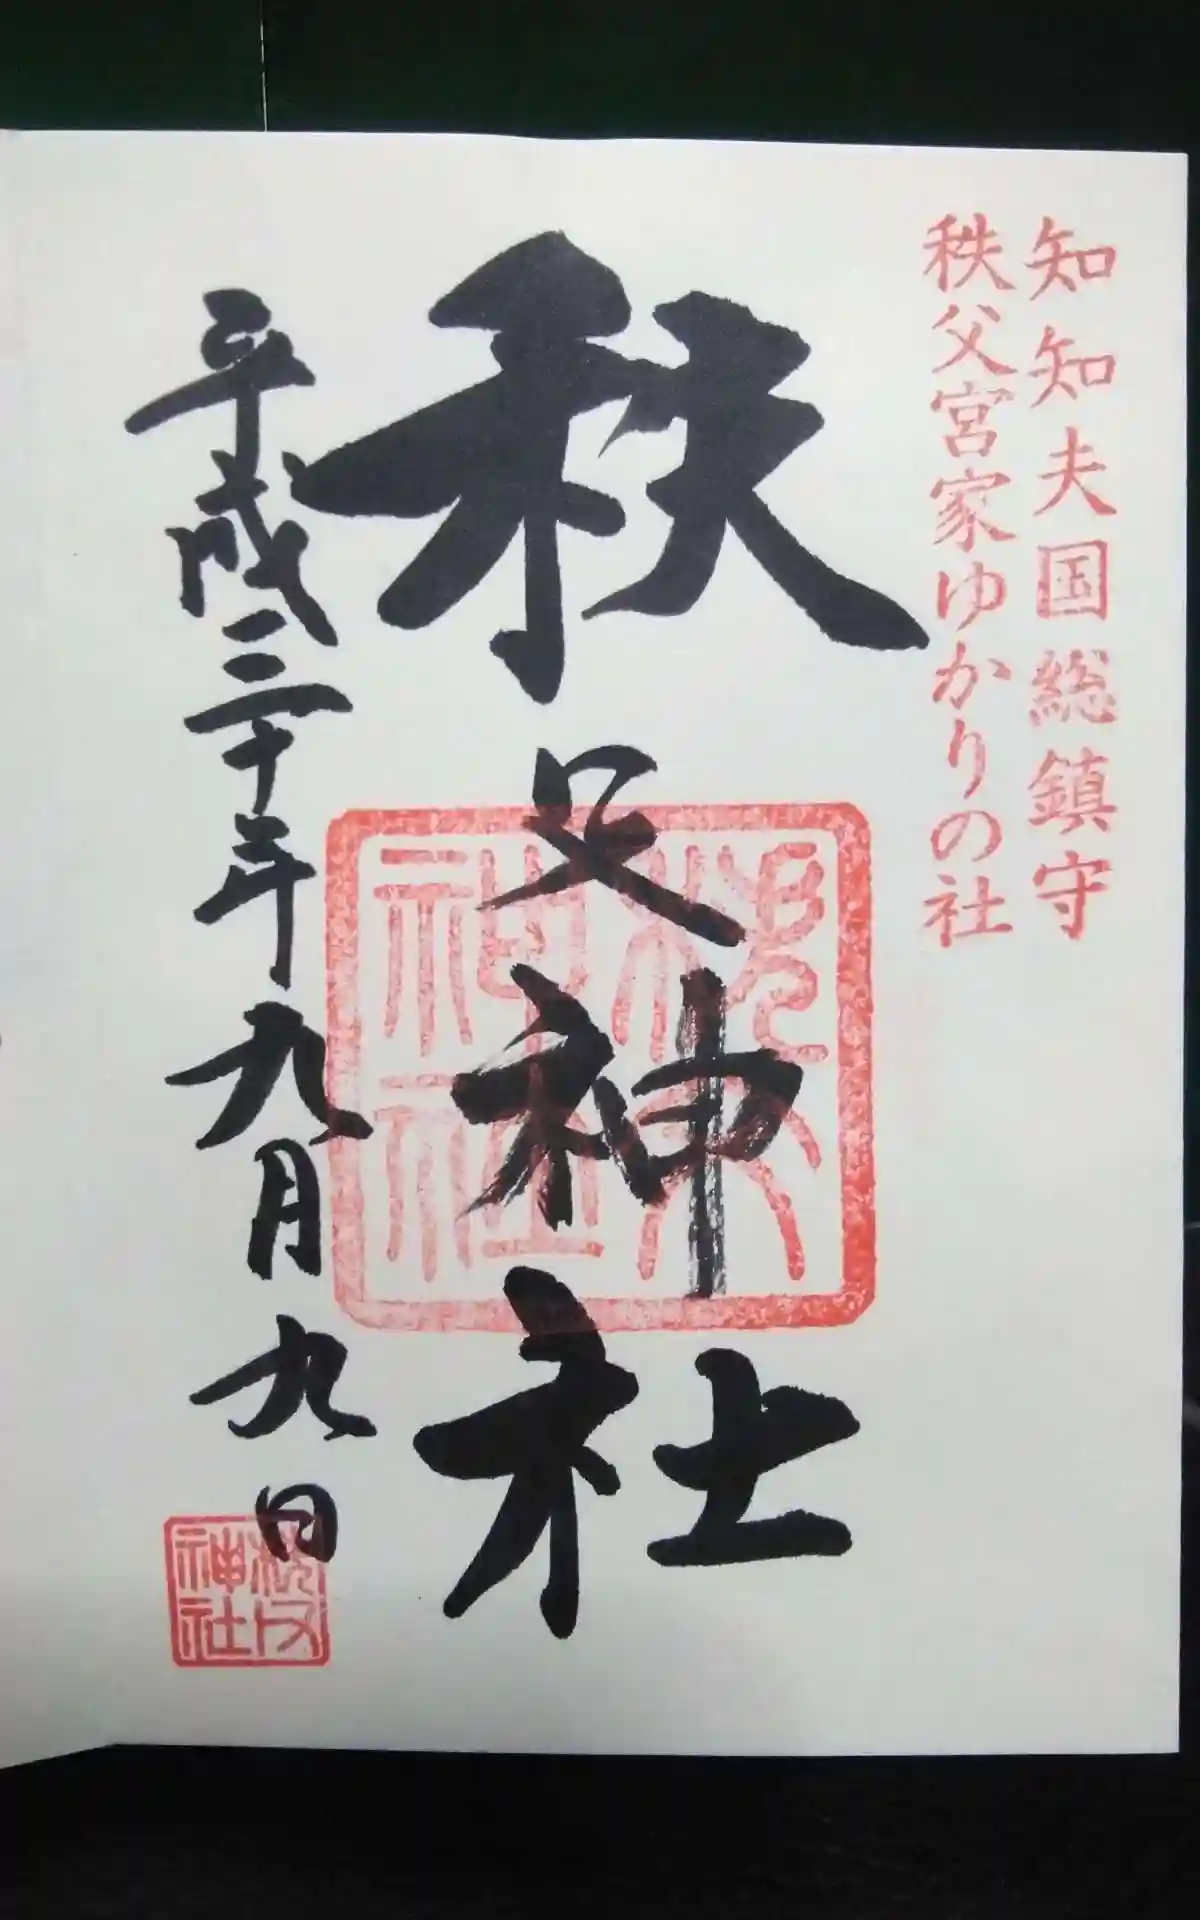 知知夫国総鎮守
秩父宮家ゆかりの社
秩父神社
秩父
神社
平成三十年九月九日
秩父
神社